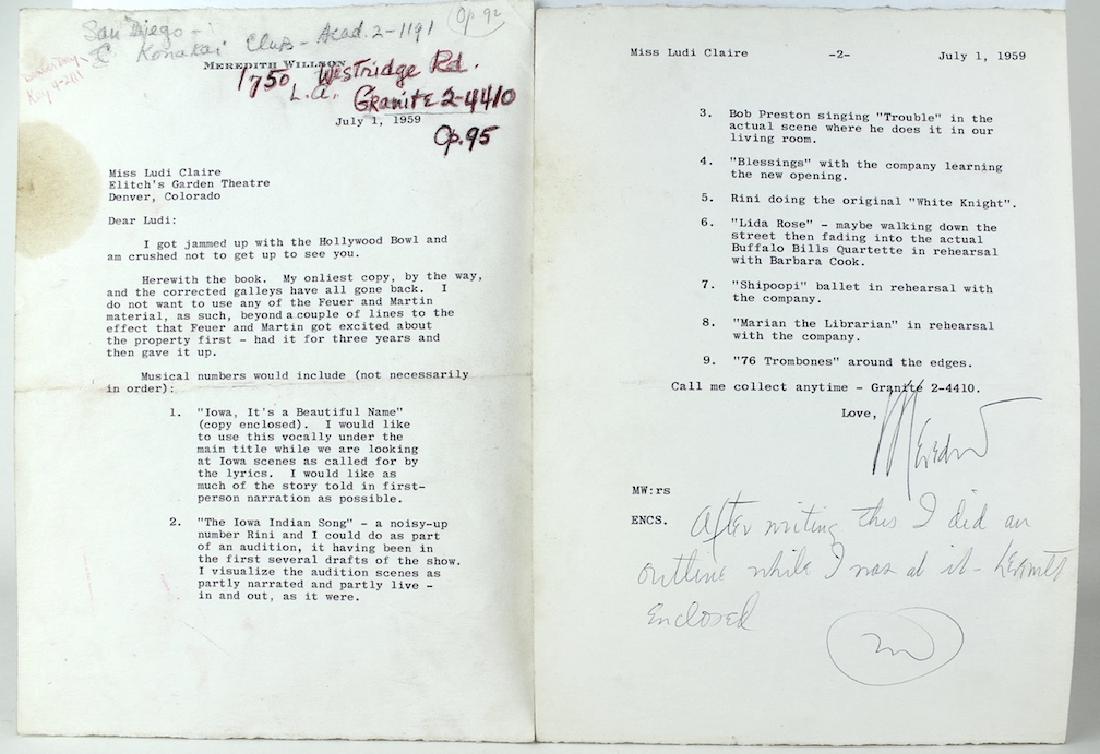 San Diego -
Op 92
Konakai Club - Acad. 2-1191
MEREDITH WILLSON
1750 Westridge Rd.
L.A. Granite 2-4410
July 1, 1959
Op. 95
Miss Ludi Claire
Elitch's Garden Theatre
Denver, Colorado
Dear Ludi:
I got jammed up with the Hollywood Bowl and
am crushed not to get up to see you.
Herewith the book. My onliest copy, by the way,
and the corrected galleys have all gone back. I
do not want to use any of the Feuer and Martin
material, as such, beyond a couple of lines to the
effect that Feuer and Martin got excited about
the property first - had it for three years and
then gave it up.
Musical numbers would include (not necessarily
in order):
1. "Iowa, It's a Beautiful Name"
(copy enclosed). I would like
to use this vocally under the
main title while we are looking
at Iowa scenes as called for by
the lyrics. I would like as
much of the story told in first-
person narration as possible.
2. "The Iowa Indian Song" - a noisy-up
number Rini and I could do as part
of an audition, it having been in
the first several drafts of the show.
I visualize the audition scenes as
partly narrated and partly live -
in and out, as it were.
Miss Ludi Claire -2- July 1, 1959
3. Bob Preston singing "Trouble" in the
actual scene where he does it in our
living room.
4. "Blessings" with the company learning
the new opening.
5. Rini doing the original "White Knight".
6. "Lida Rose" - maybe walking down the
street then fading into the actual
Buffalo Bills Quartette in rehearsal
with Barbara Cook.
7. "Shipoopi" ballet in rehearsal with
the company.
8. "Marian the Librarian" in rehearsal
with the company.
9. "76 Trombones" around the edges.
Call me collect anytime - Granite 2-4410.
Love,
Meredith
MW:rs
ENCS.
After writing this I did an
outline while I was at it - herewith
enclosed